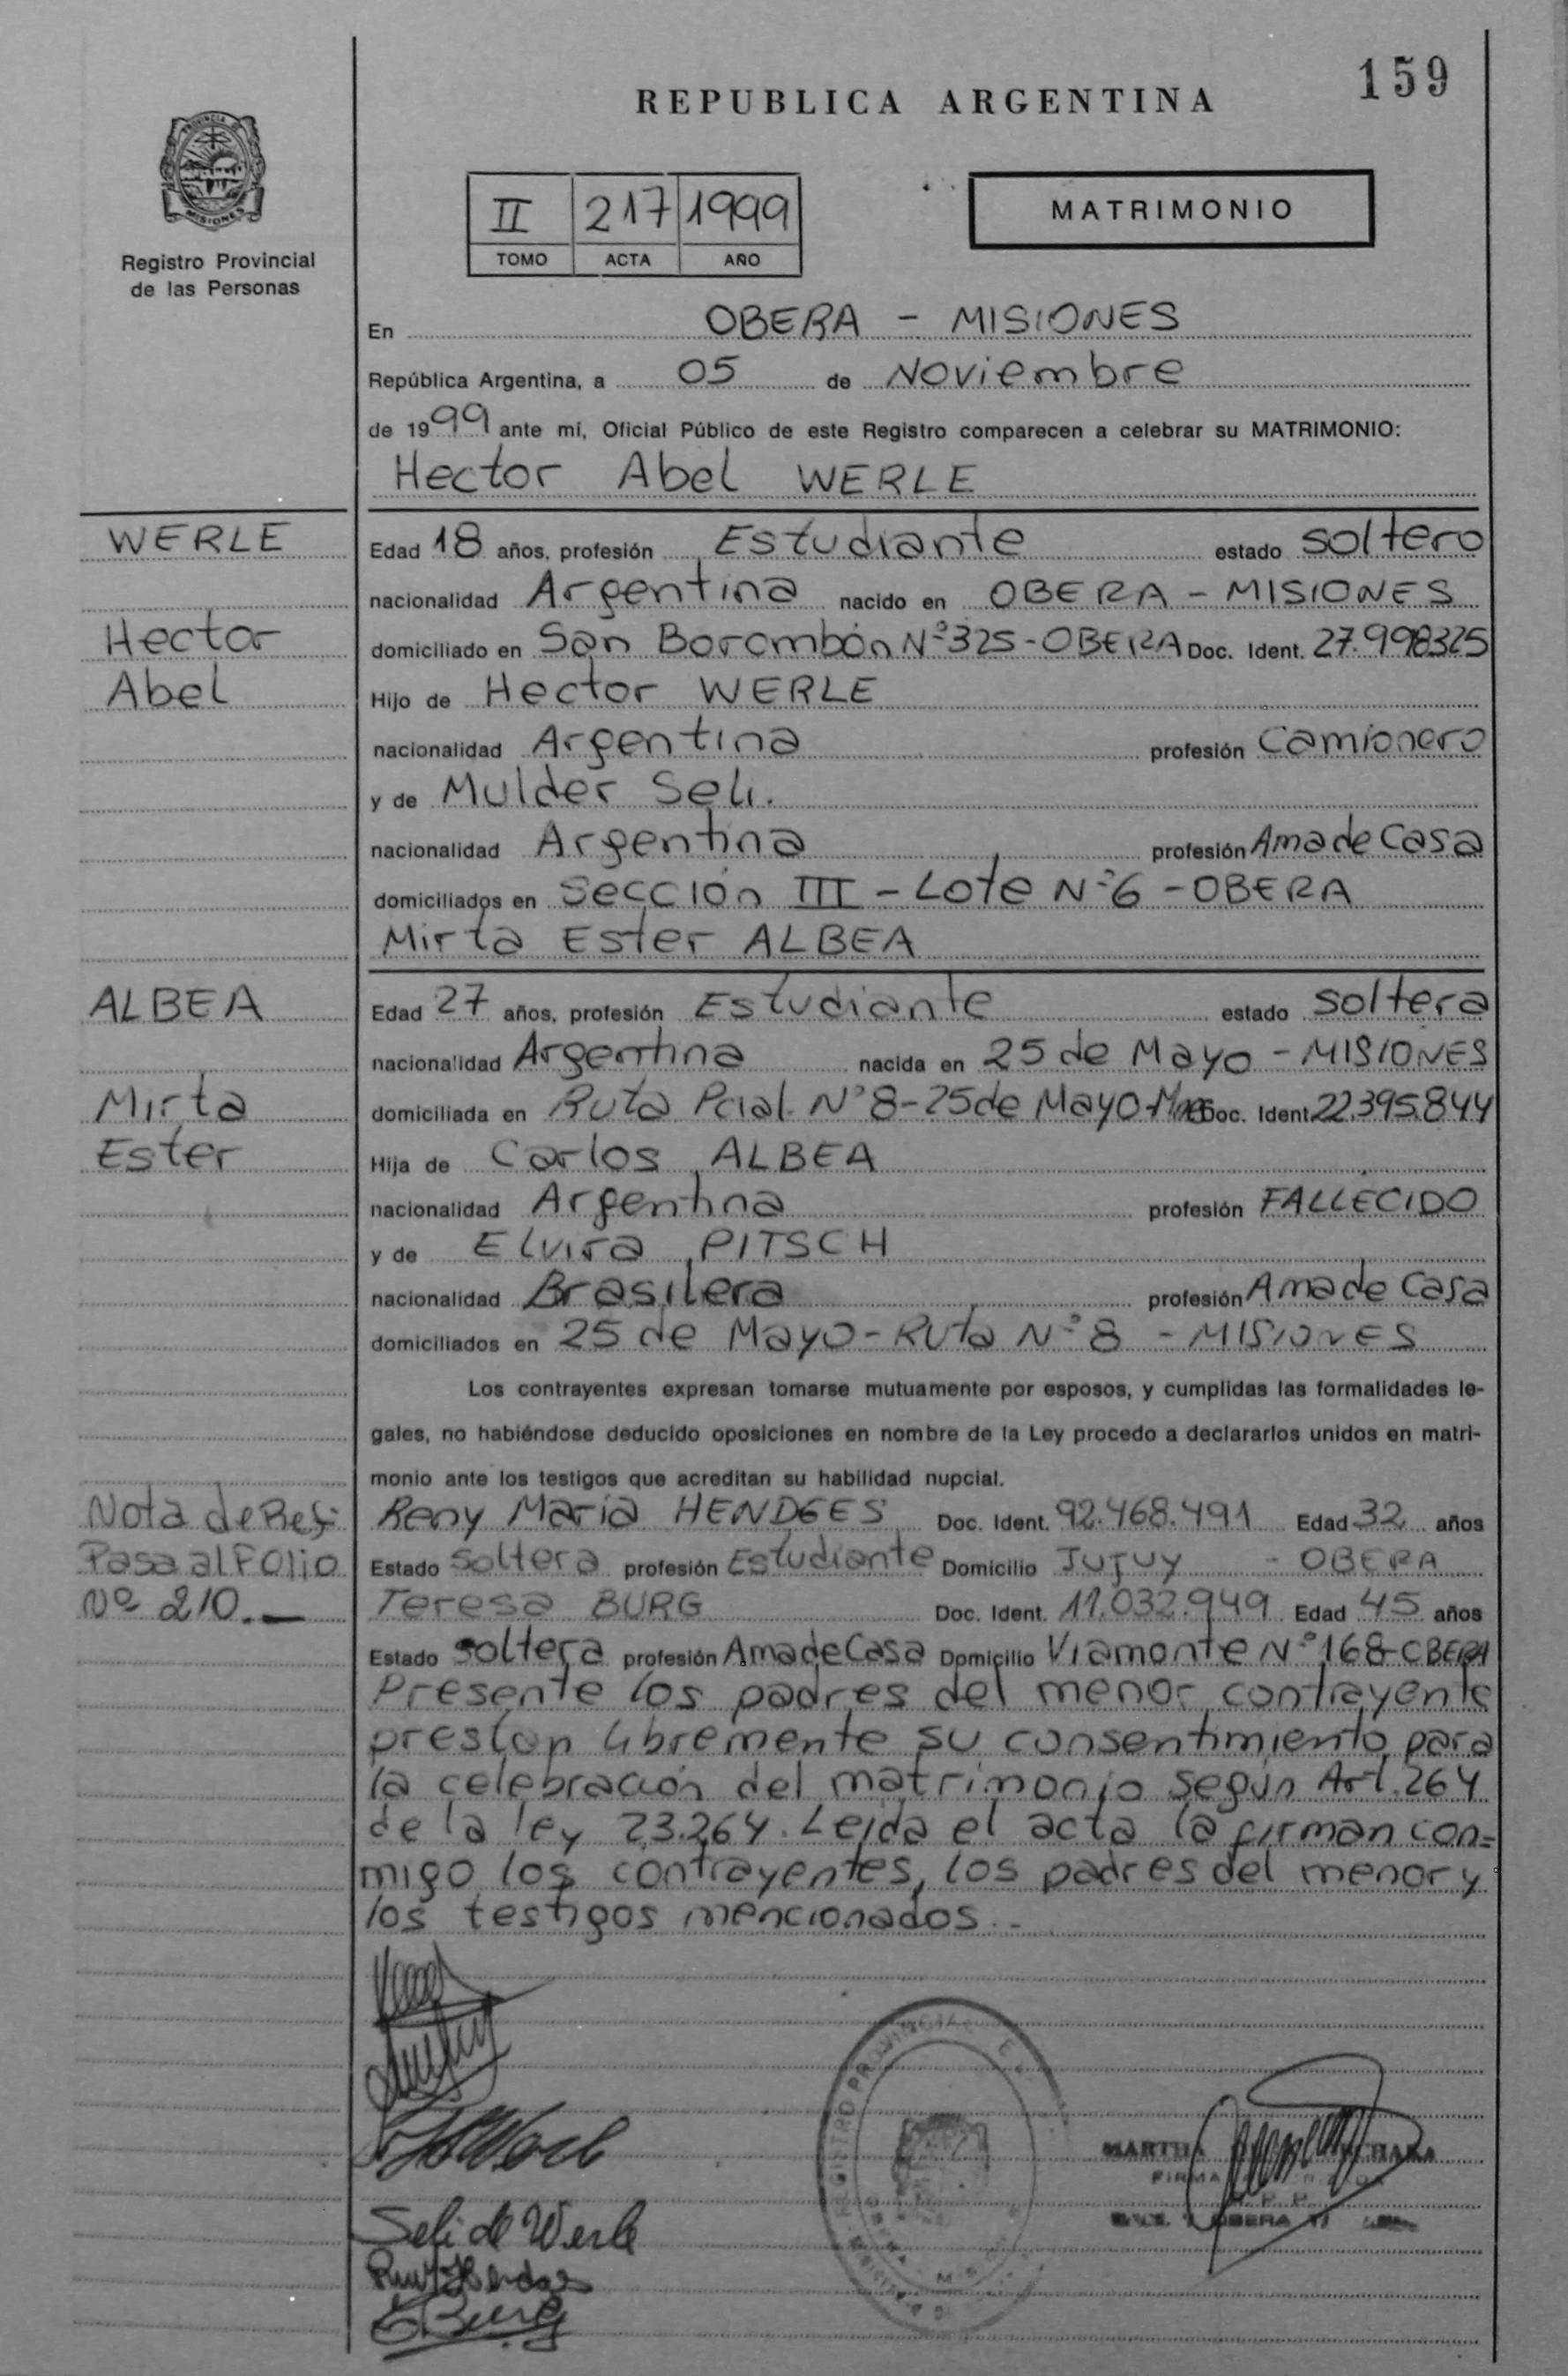 159
REPUBLICA ARGENTINA
PROVINCIA DE
MISIONES
Registro Provincial
de las Personas
II 217 1999
TOMO ACTA AÑO
MATRIMONIO
En OBERA - MISIONES
República Argentina, a 05 de Noviembre
de 1999 ante mí, Oficial Público de este Registro comparecen a celebrar su MATRIMONIO:
Hector Abel WERLE
WERLE
Hector
Abel
Edad 18 años, profesión Estudiante estado soltero
nacionalidad Argentina nacido en OBERA - MISIONES
domiciliado en San Borombón Nº 325 - OBERA Doc. Ident. 27.998325
Hijo de Hector WERLE
nacionalidad Argentina profesión Camionero
y de Mulder Seli.
nacionalidad Argentina profesión Ama de Casa
domiciliados en Sección III - Lote Nº 6 - OBERA
Mirta Ester ALBEA
ALBEA
Mirta
Ester
Edad 27 años, profesión Estudiante estado soltera
nacionalidad Argentina nacida en 25 de Mayo - MISIONES
domiciliada en Ruta Pcial. Nº 8 - 25 de Mayo - Mnes Doc. Ident. 22.395.844
Hija de Carlos ALBEA
nacionalidad Argentina profesión FALLECIDO
y de Elvira PITSCH
nacionalidad Brasilera profesión Ama de Casa
domiciliados en 25 de Mayo - Ruta Nº 8 - MISIONES
Los contrayentes expresan tomarse mutuamente por esposos, y cumplidas las formalidades le-
gales, no habiéndose deducido oposiciones en nombre de la Ley procedo a declararlos unidos en matri-
monio ante los testigos que acreditan su habilidad nupcial.
Nota de Ref:
Pasa al Folio
Nº 210.—
Reny María HENDGES Doc. Ident. 92.468.491 Edad 32 años
Estado soltera profesión Estudiante Domicilio Jujuy - OBERA
Teresa BURG Doc. Ident. 11.032.949 Edad 45 años
Estado soltera profesión Ama de Casa Domicilio Viamonte Nº 168 - OBERA
Presente los padres del menor contrayente
prestan libremente su consentimiento para
la celebración del matrimonio según Art. 264
de la ley 23.264. Leída el acta la firman con=
migo los contrayentes, los padres del menor y
los testigos mencionados.-
Seli de Werle
REGISTRO PROVINCIAL
MARTHA
FIRMA
OBERA